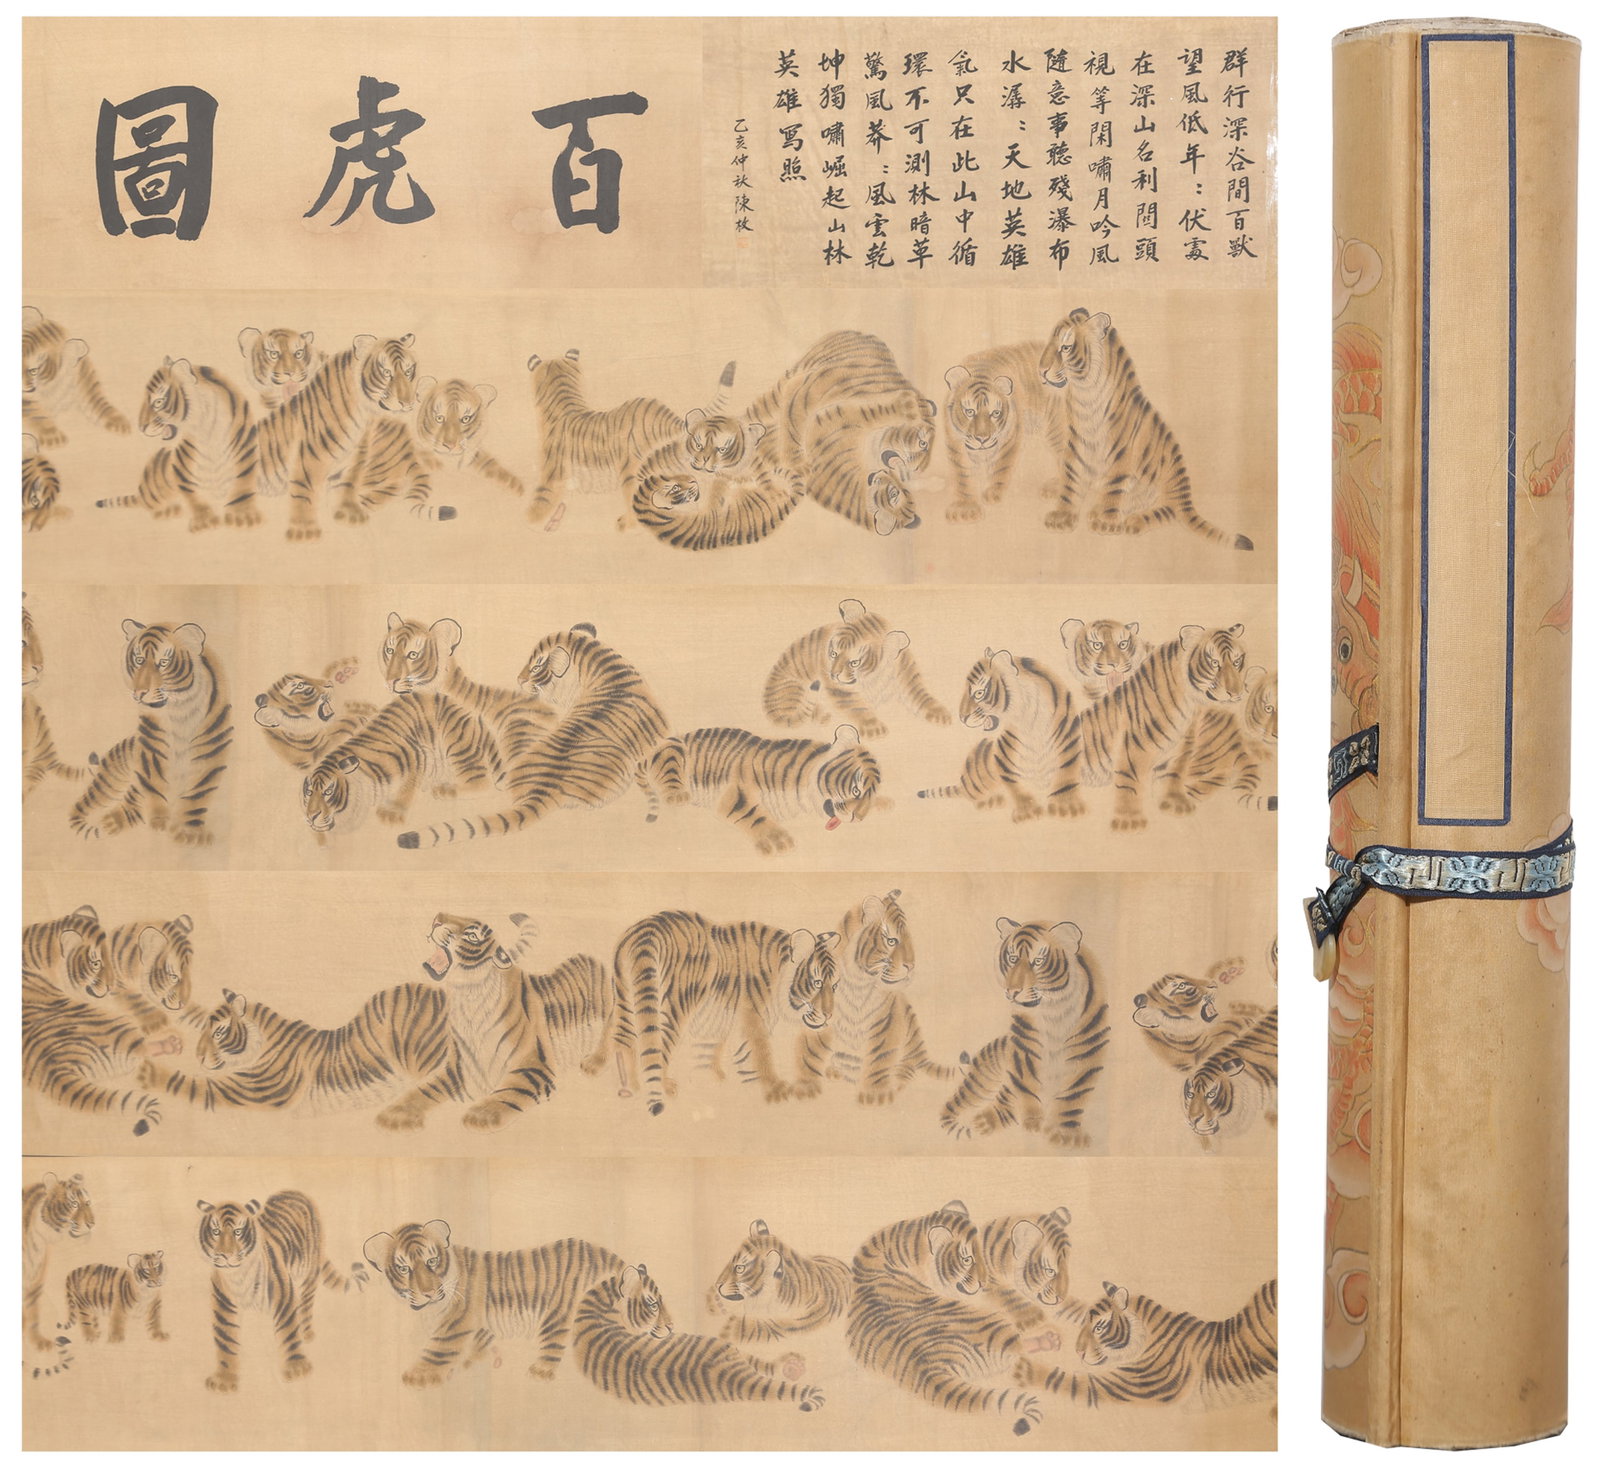 群行深谷間百獸
望風低年：伏處
在深山名利関頭
視等閑嘯月吟風
隨意事聽殘瀑布
水潺：天地英雄
氣只在此山中循
環不可測林暗草
驚風莽：風雲乾
坤獨嘯崛起山林
英雄寫照
乙亥仲秋陳枚
百虎圖